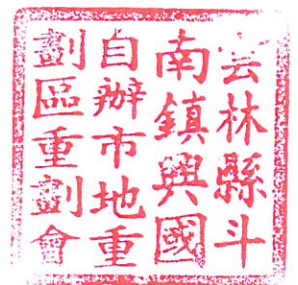 雲林縣斗
南鎮興國
自辦市地重
劃區重劃會